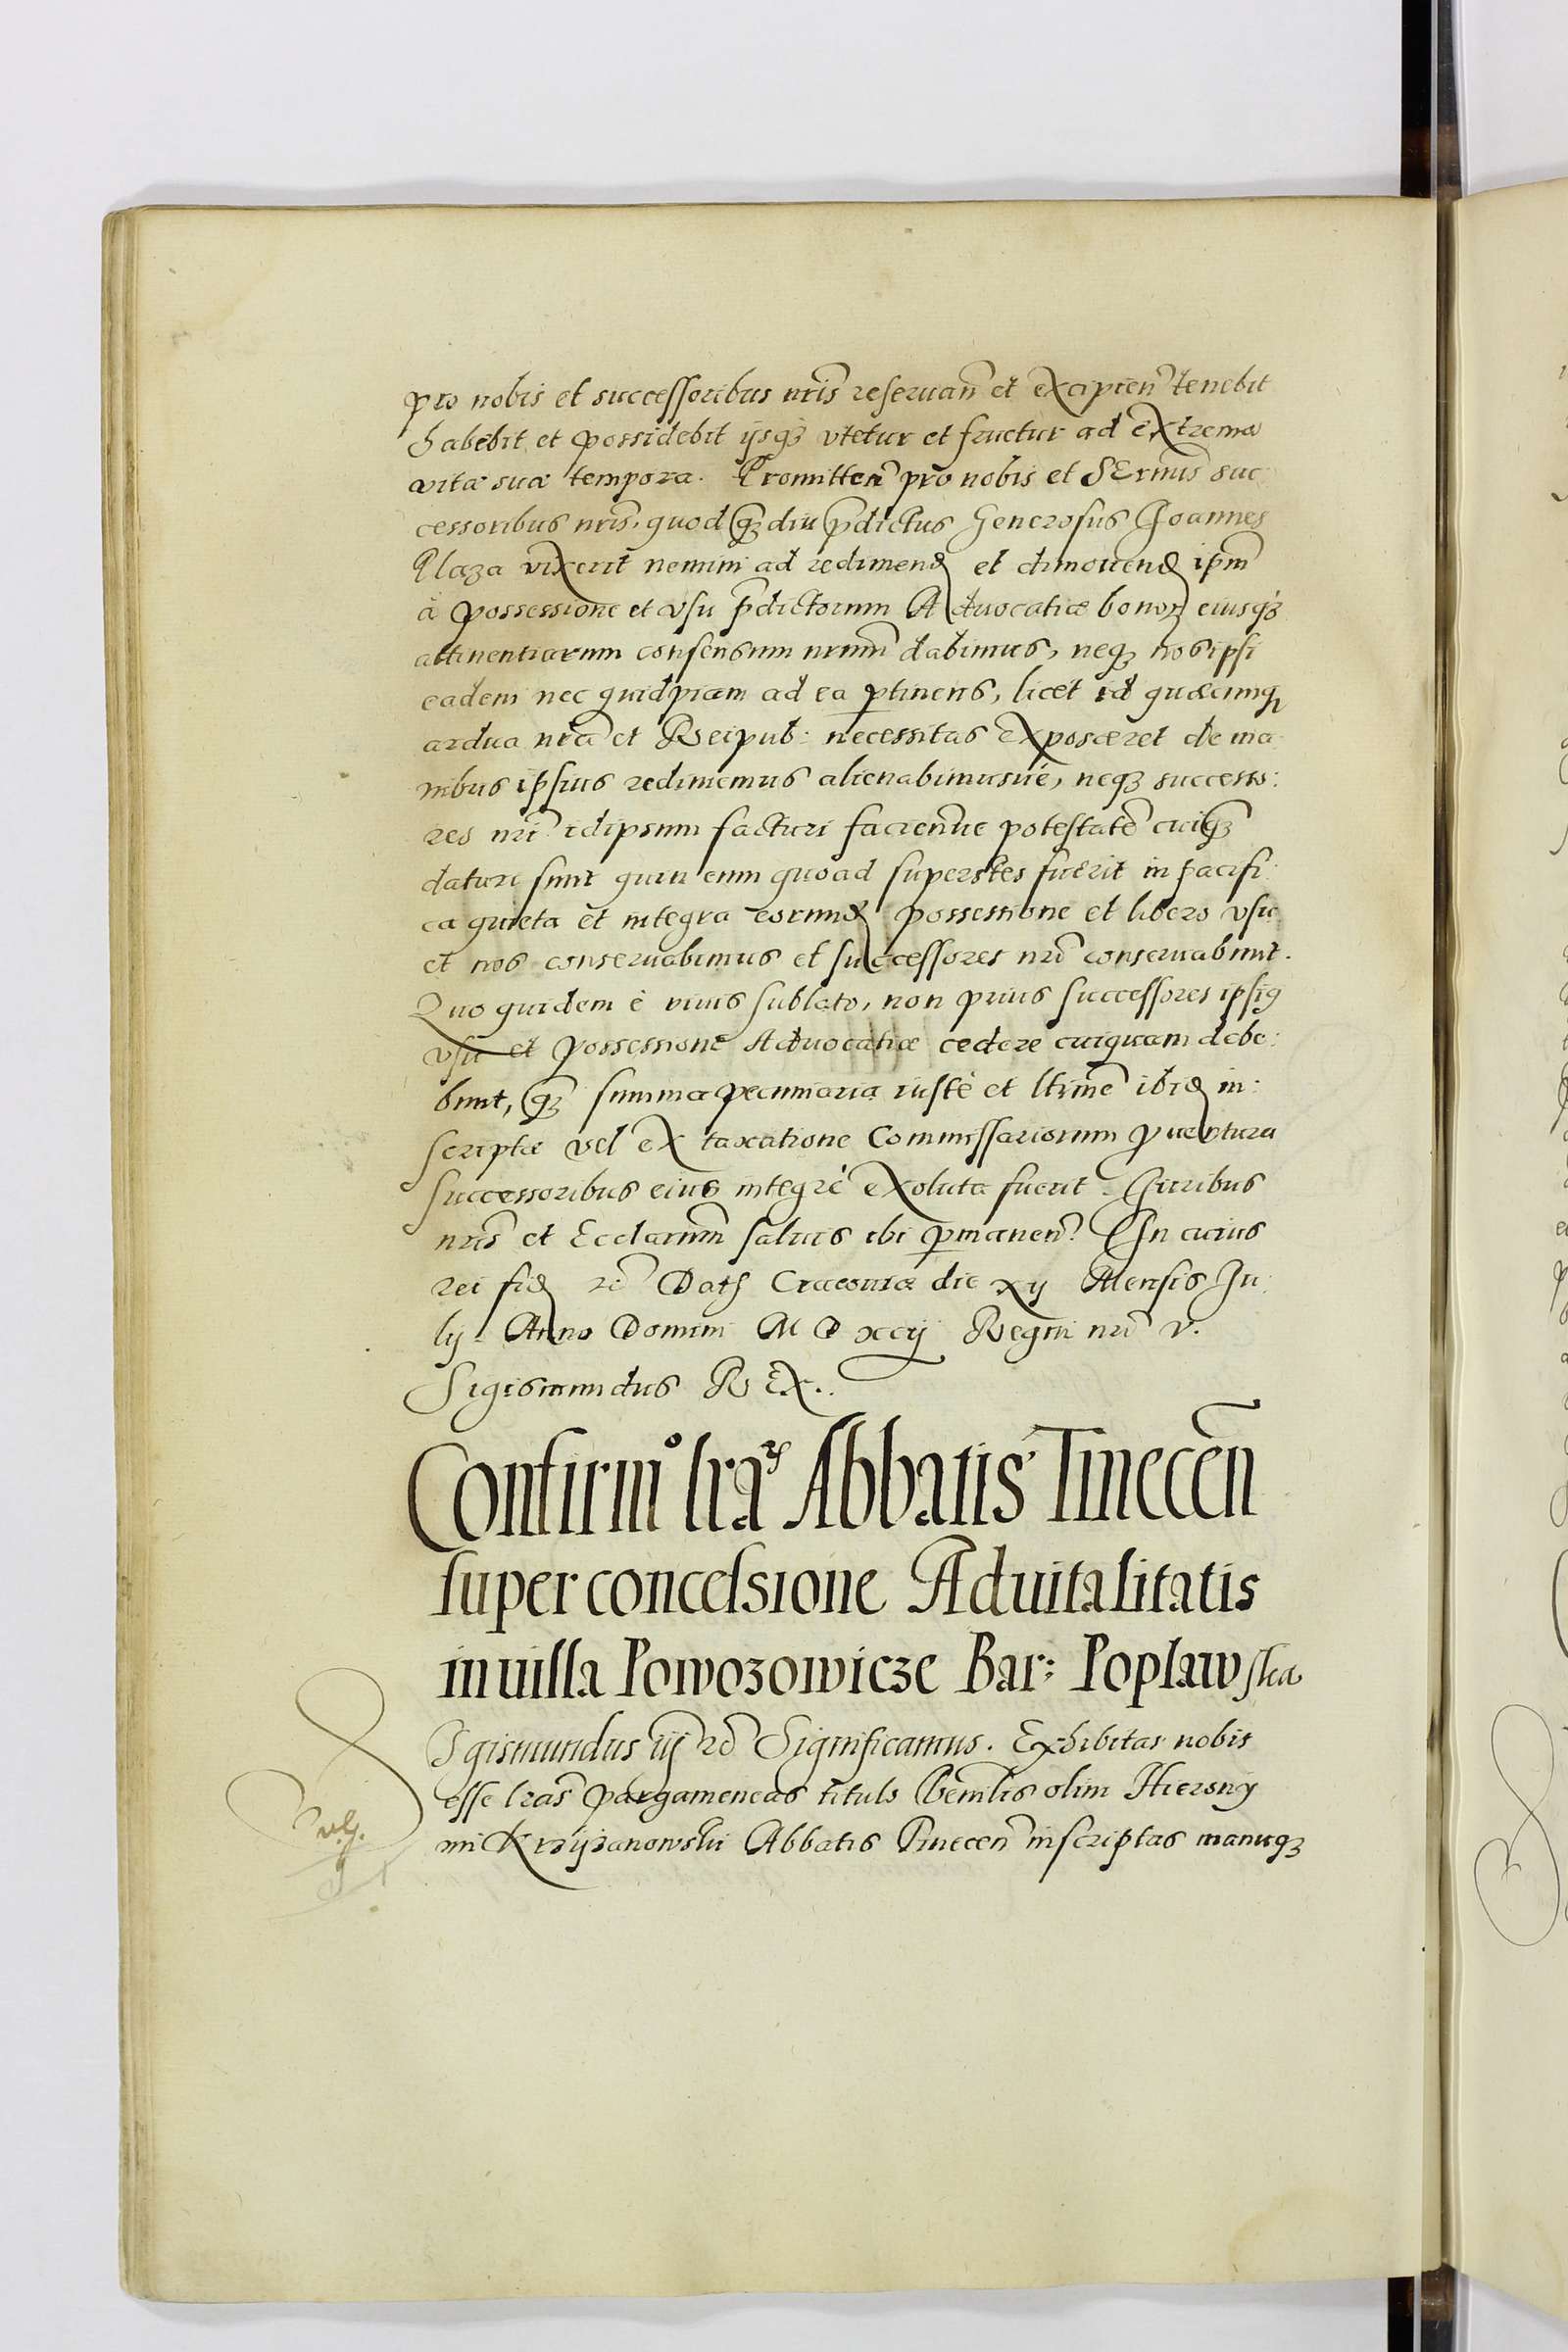 pro nobis et successoribus nris reseruan et excipien tenebit
habebit et possidebit ijsq3 vtetur et fruetur ad extrema
vitæ suæ tempora. Promitten pro nobis et SErmis suc
cessoribus nris, quod q3diu pdictus Generosus Joannes
Plaza vixerit nemini ad redimend et dimouend ipm
à possessione et vsu pdictorum Aduocatiæ bonor eiusq3
attinentiarum consensum nrum dabimus, neq3 nos ipsi
eadem nec quidpiam ad ea ptinens, licet id quæcunq3
ardua nra et Reipub: necessitas exposceret de ma
nibus ipsius redimemus alienabimusué, neq3 successo:
res nri idipsum facturi faciendue potestate cuiq3
daturi sunt quin eum quoad superstes fuerit in pacifi
ca quieta et integra eorund possessione et libero vsu
et nos conseruabimus et successores nri conseruabunt.
Quo quidem è viuis sublato, non prius successores ipsius
vsu et possessione Aduocatiæ cedere cuiquam debe:
bunt, q3 summa pecuniaria iustè et ltime ibid in:
scripta vel ex taxatione Commissariorum puentura
successoribus eius integrè exoluta fuerit. Juribus
nris et Ecclarum saluis ibi pmanen. In cuius
rei fid rc Dat Cracouiæ die xij Mensis Ju
lij. Anno Domini M D xcij Regni nri v.
Sigismundus REX..
Confirmo lrar Abbatis Tinecen
super concessione Aduitalitatis
in uilla Powozowicze Bar: Poplawska
Sigismundus iij rc Significamus. Exhibitas nobis
esse lras pargameneas titulo Venlis olim Hierony
mi Krzijzanowski Abbatis Tinecen inscriptas manuq3